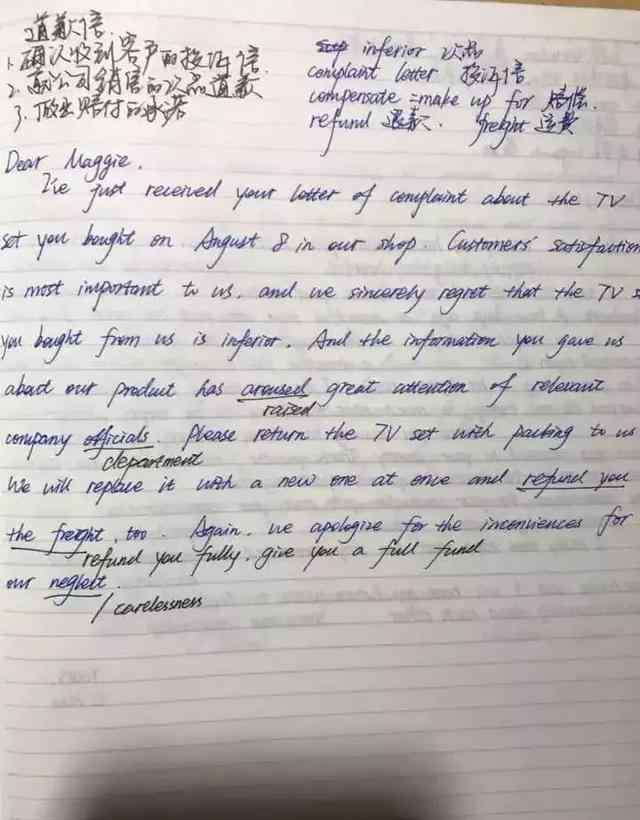 道歉信.
1. 确认收到客户的投诉信.
2. 就公司销售的次品道歉
3. 做出赔付的承诺
inferior 次的
complaint lotter 投诉信
compensate = make up for 赔偿.
refund 退款. freight 运费
Dear Maggie.
I've just received your lotter of complaint about the TV
set you bought on August 8 in our shop. Customers' satisfaction
is most important to us, and we sincerely regret that the TV s
you bought from us is inferior. And the information you gave us
about our product has aroused great attention of relevant
raised
company officials. Please return the TV set with packing to us
department
We will replace it with a new one at once and refund you
the freight, too. Again, we apologize for the inconviences for
refund you fully. give you a full fund
our neglect.
/ carelessness